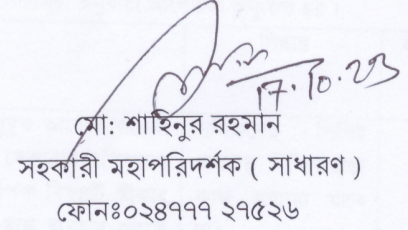 17.10.23
মো: শাহিনুর রহমান
সহকারী মহাপরিদর্শক ( সাধারণ )
ফোনঃ০২৪৭৭৭ ২৭৫২৬